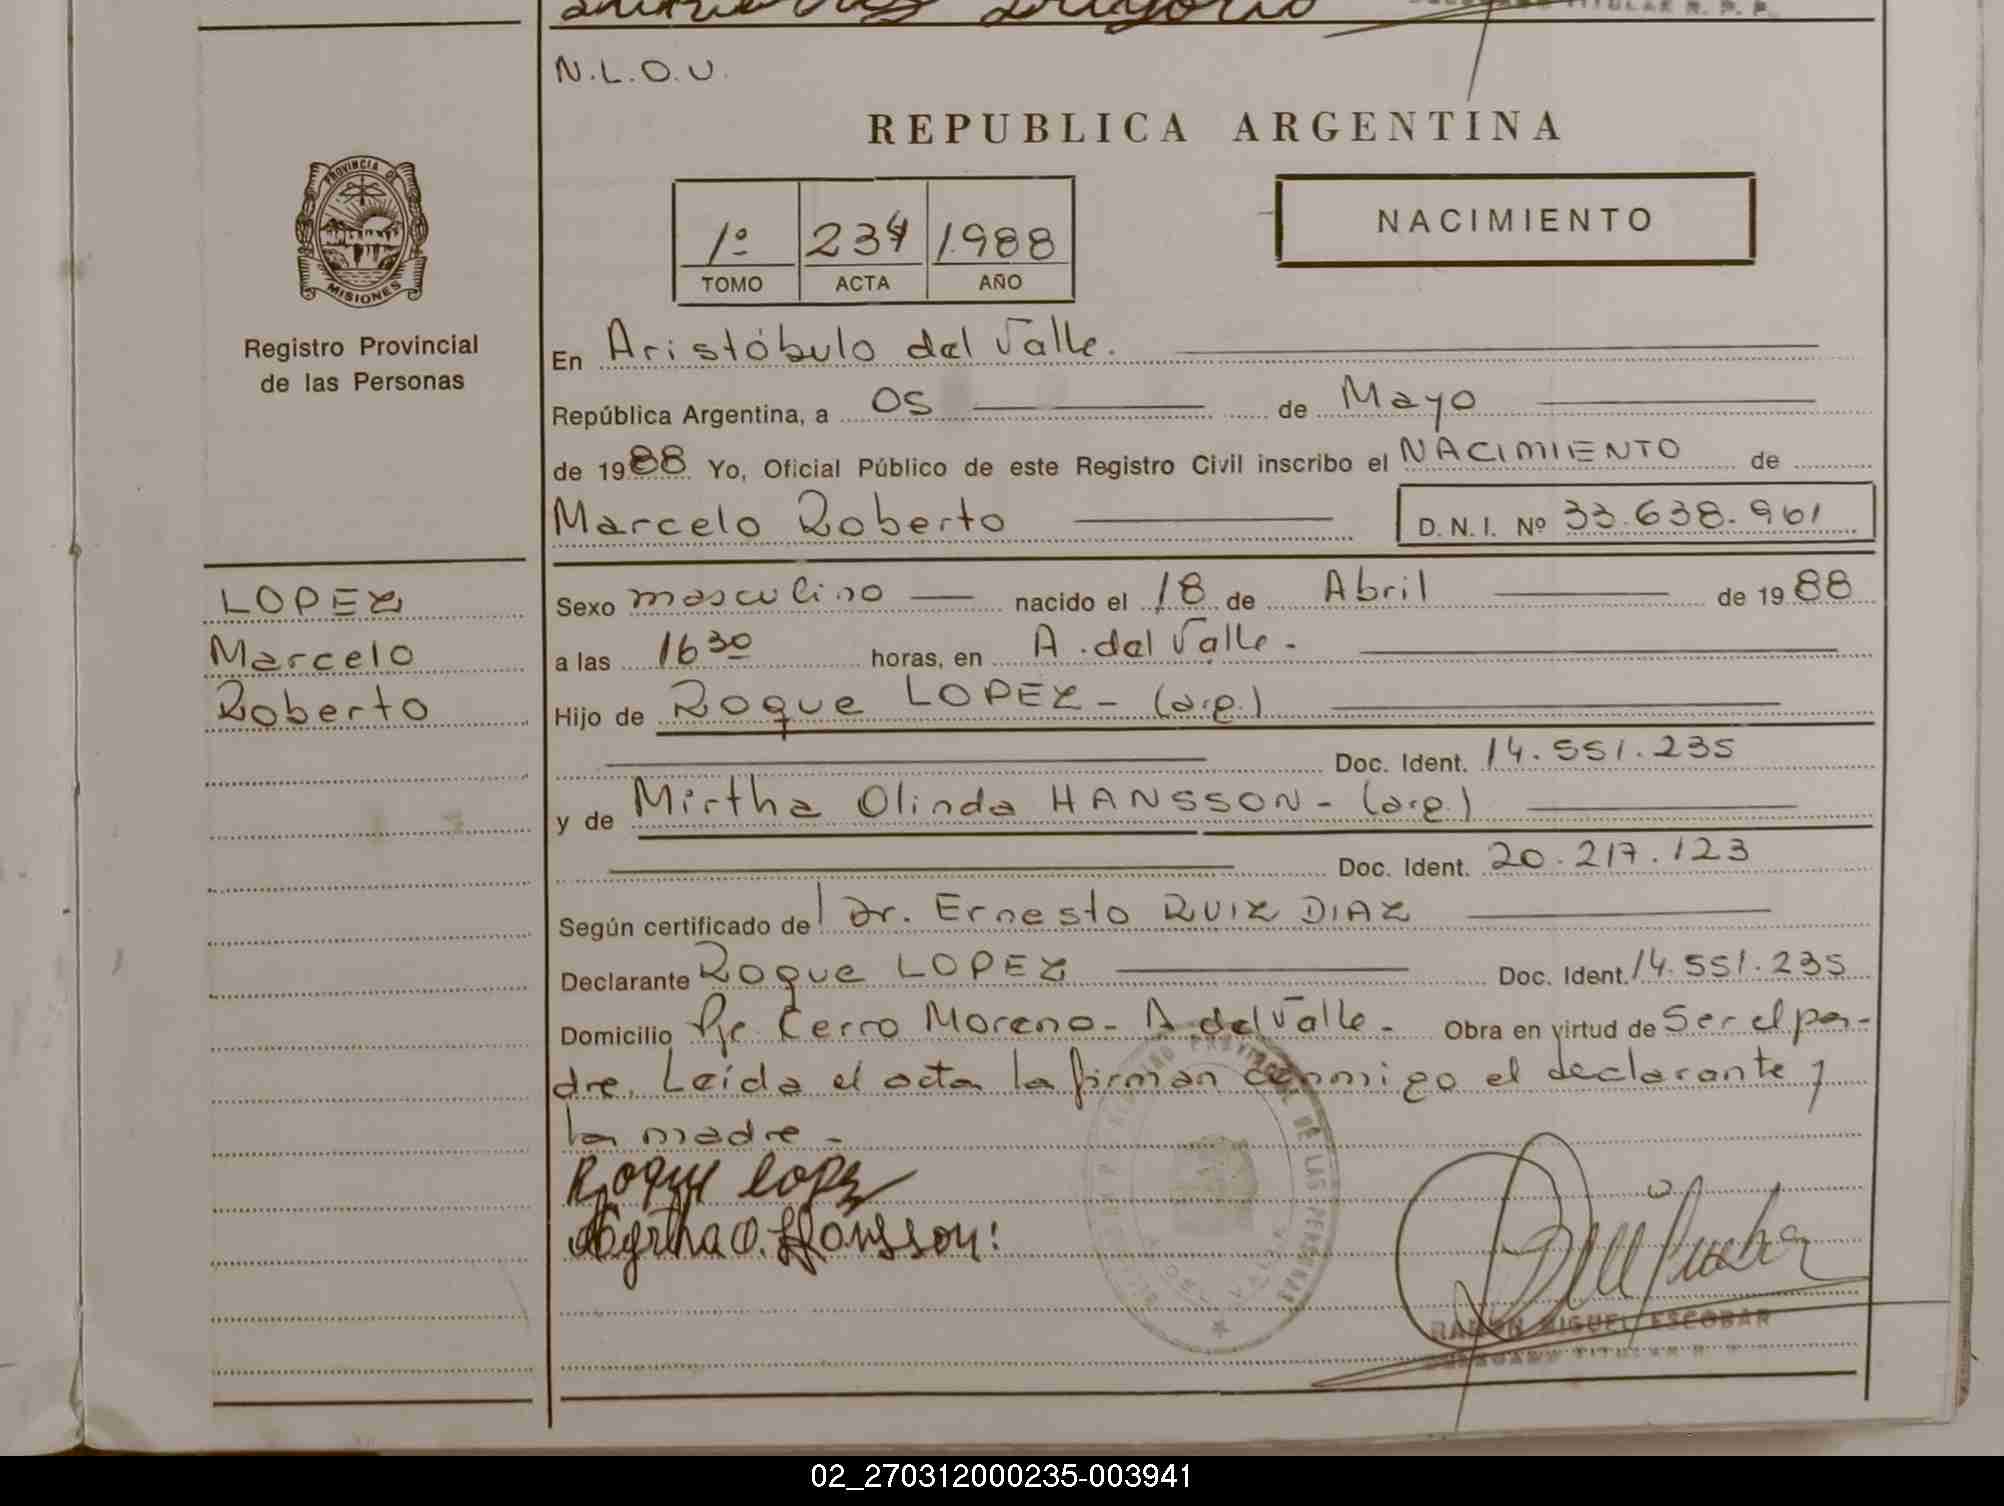 N.L.O.U.
REPUBLICA ARGENTINA
PROVINCIA DE
MISIONES
Registro Provincial
de las Personas
1º 234 1.988
TOMO ACTA AÑO
NACIMIENTO
En Aristóbulo del Valle.
República Argentina, a 05 de Mayo
de 1988 Yo, Oficial Público de este Registro Civil inscribo el NACIMIENTO de
Marcelo Roberto D. N. I. Nº 33.638.961
LOPEZ
Marcelo
Roberto
Sexo masculino nacido el 18 de Abril de 1988
a las 16 30 horas, en A. del Valle -
Hijo de Roque LOPEZ - (arg.)
Doc. Ident. 14.551.235
y de Mirtha Olinda HANSSON - (arg.)
Doc. Ident. 20.217.123
Según certificado de Dr. Ernesto RUIZ DIAZ
Declarante Roque LOPEZ Doc. Ident. 14.551.235
Domicilio Pje. Cerro Moreno - A. del Valle - Obra en virtud de Ser el pa-
dre. Leída el acta la firman conmigo el declarante y
la madre -
Roque Lopez
Myrtha O. Hansson
RAMON MIGUEL ESCOBAR
DELEGADO TITULAR R. P. P.
02_270312000235-003941